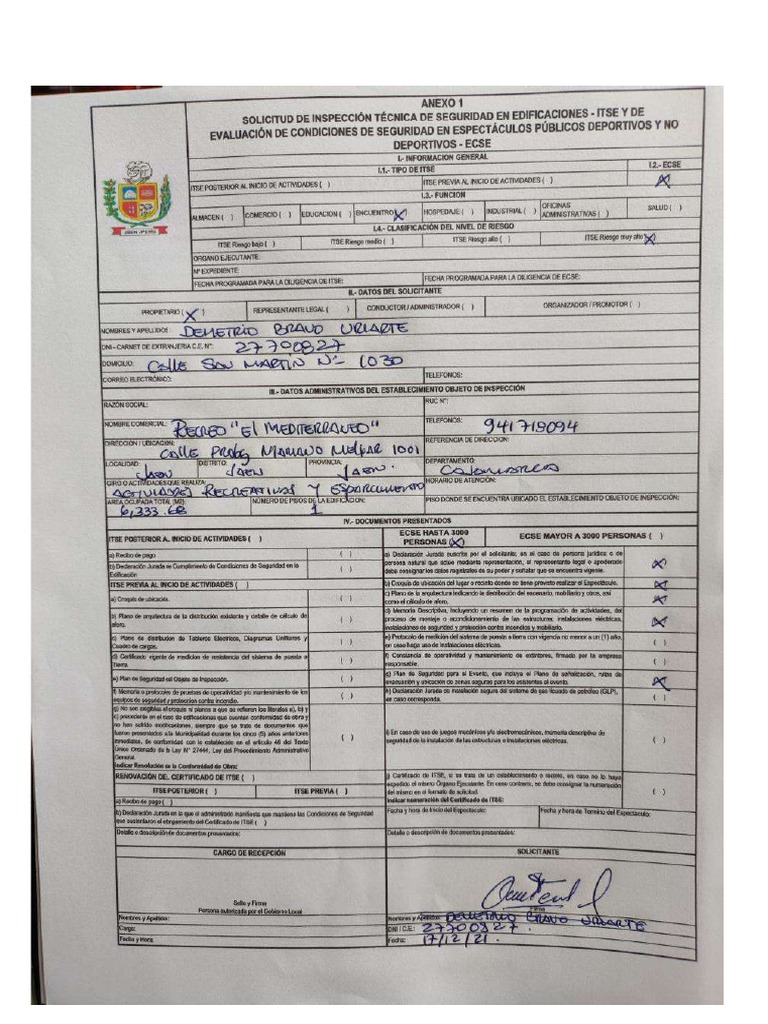 ANEXO 1
SOLICITUD DE INSPECCIÓN TÉCNICA DE SEGURIDAD EN EDIFICACIONES - ITSE Y DE
EVALUACIÓN DE CONDICIONES DE SEGURIDAD EN ESPECTÁCULOS PÚBLICOS DEPORTIVOS Y NO
DEPORTIVOS - ECSE
I.- INFORMACION GENERAL
I.1.- TIPO DE ITSE
I.2.- ECSE
ITSE POSTERIOR AL INICIO DE ACTIVIDADES ( )
ITSE PREVIA AL INICIO DE ACTIVIDADES ( )
X
I.3.- FUNCION
ALMACEN ( )
COMERCIO ( )
EDUCACION ( )
ENCUENTRO (X)
HOSPEDAJE ( )
INDUSTRIAL ( )
OFICINAS
ADMINISTRATIVAS ( )
SALUD ( )
JAEN - PERU
I.4.- CLASIFICACIÓN DEL NIVEL DE RIESGO
ITSE Riesgo bajo ( )
ITSE Riesgo medio ( )
ITSE Riesgo alto ( )
ITSE Riesgo muy alto (X)
ORGANO EJECUTANTE:
Nº EXPEDIENTE:
FECHA PROGRAMADA PARA LA DILIGENCIA DE ITSE:
FECHA PROGRAMADA PARA LA DILIGENCIA DE ECSE:
II.- DATOS DEL SOLICITANTE
PROPIETARIO (X)
REPRESENTANTE LEGAL ( )
CONDUCTOR / ADMINISTRADOR ( )
ORGANIZADOR / PROMOTOR ( )
NOMBRES Y APELLIDOS: DEMETRIO BRAVO URIARTE
DNI - CARNET DE EXTRANJERIA C.E. Nº: 27700827
DOMICILIO: Calle SAN MARTIN Nº 1030
CORREO ELECTRÓNICO:
TELEFONOS:
III.- DATOS ADMINISTRATIVOS DEL ESTABLECIMIENTO OBJETO DE INSPECCIÓN
RAZÓN SOCIAL:
RUC Nº:
NOMBRE COMERCIAL: RECREO "El MEDITERRANEO"
TELEFONOS: 941719094
DIRECCIÓN / UBICACIÓN: Calle Prolg MARIANO MELGAR 1001
REFERENCIA DE DIRECCION:
LOCALIDAD: JAEN
DISTRITO: JAEN
PROVINCIA: JAEN.
DEPARTAMENTO: CAJAMARCA
GIRO O ACTIVIDADES QUE REALIZA: ACTIVIDADES RECREATIVAS Y ESPARCIMIENTO
HORARIO DE ATENCIÓN:
AREA OCUPADA TOTAL (M2): 6,333.68
NÚMERO DE PISOS DE LA EDIFICACION: 1
PISO DONDE SE ENCUENTRA UBICADO EL ESTABLECIMIENTO OBJETO DE INSPECCIÓN:
IV.- DOCUMENTOS PRESENTADOS
ITSE POSTERIOR AL INICIO DE ACTIVIDADES ( )
ECSE HASTA 3000
PERSONAS (X)
ECSE MAYOR A 3000 PERSONAS ( )
a) Recibo de pago ( )
b) Declaración Jurada de Cumplimiento de Condiciones de Seguridad en la
Edificación ( )
ITSE PREVIA AL INICIO DE ACTIVIDADES ( )
a) Croquis de ubicación. ( )
b) Plano de arquitectura de la distribución existente y detalle de cálculo de
aforo. ( )
c) Plano de distribución de Tableros Eléctricos, Diagramas Unifilares y
Cuadro de cargas. ( )
d) Certificado vigente de medicion de resistencia del sistema de puesta a
Tierra ( )
e) Plan de Seguridad del Objeto de Inspección. ( )
f) Memoria o protocolos de pruebas de operatividad y/o mantenimiento de los
equipos de seguridad y protección contra incendio. ( )
g) No son exigibles el croquis ni planos a que se refieren los literales a), b) y
c) precedente en el caso de edificaciones que cuentan conformidad de obra y
no han sufrido modificaciones, siempre que se trate de documentos que
fueron presentados a la Municipalidad durante los cinco (5) años anteriores
inmediatos, de conformidad con lo establecido en el artículo 46 del Texto
Único Ordenado de la Ley N° 27444, Ley del Procedimiento Administrativo
General. ( )
Indicar Resolución de la Conformidad de Obra:
RENOVACIÓN DEL CERTIFICADO DE ITSE ( )
ITSE POSTERIOR ( )
ITSE PREVIA ( )
a) Recibo de pago ( )
b) Declaración Jurada en la que el administrado manifiesta que mantiene las Condiciones de Seguridad
que sustentaron el otorgamiento del Certificado de ITSE ( )
Detalle o descripción de documentos presentados:
a) Declaración Jurada suscrita por el solicitante; en el caso de persona jurídica o de
persona natural que actúe mediante representación, el representante legal o apoderado
debe consignar los datos registrales de su poder y señalar que se encuentra vigente. (X)
b) Croquis de ubicación del lugar o recinto donde se tiene previsto realizar el Espectáculo. (X)
c) Plano de la arquitectura indicando la distribución del escenario, mobiliario y otros, así
como el cálculo de aforo. (X)
d) Memoria Descriptiva, incluyendo un resumen de la programación de actividades, del
proceso de montaje o acondicionamiento de las estructuras; instalaciones eléctricas,
instalaciones de seguridad y protección contra incendios y mobiliario. (X)
e) Protocolo de medición del sistema de puesta a tierra con vigencia no menor a un (1) año,
en caso haga uso de instalaciones eléctricas. ( )
f) Constancia de operatividad y mantenimiento de extintores, firmado por la empresa
responsable. ( )
g) Plan de Seguridad para el Evento, que incluya el Plano de señalización, rutas de
evacuación y ubicación de zonas seguras para los asistentes al evento. (X)
h) Declaración Jurada de instalación segura del sistema de gas licuado de petróleo (GLP),
en caso corresponda. ( )
i) En caso de uso de juegos mecánicos y/o electromecánicos, memoria descriptiva de
seguridad de la instalación de las estructuras e instalaciones eléctricas. ( )
j) Certificado de ITSE, si se trata de un establecimiento o recinto, en caso no lo haya
expedido el mismo Órgano Ejecutante. En caso contrario, se debe consignar la numeración
del mismo en el formato de solicitud. ( )
Indicar numeración del Certificado de ITSE:
Fecha y hora de Inicio del Espectáculo:
Fecha y hora de Termino del Espectaculo:
Detalle o descripción de documentos presentados:
CARGO DE RECEPCIÓN
SOLICITANTE
Sello y Firma
Persona autorizada por el Gobierno Local
Firma
Nombres y Apellidos:
Cargo:
Fecha y Hora:
Nombres y Apellidos: DEMETRIO BRAVO URIARTE
DNI / C.E.: 27700827.
Fecha: 17/12/21.